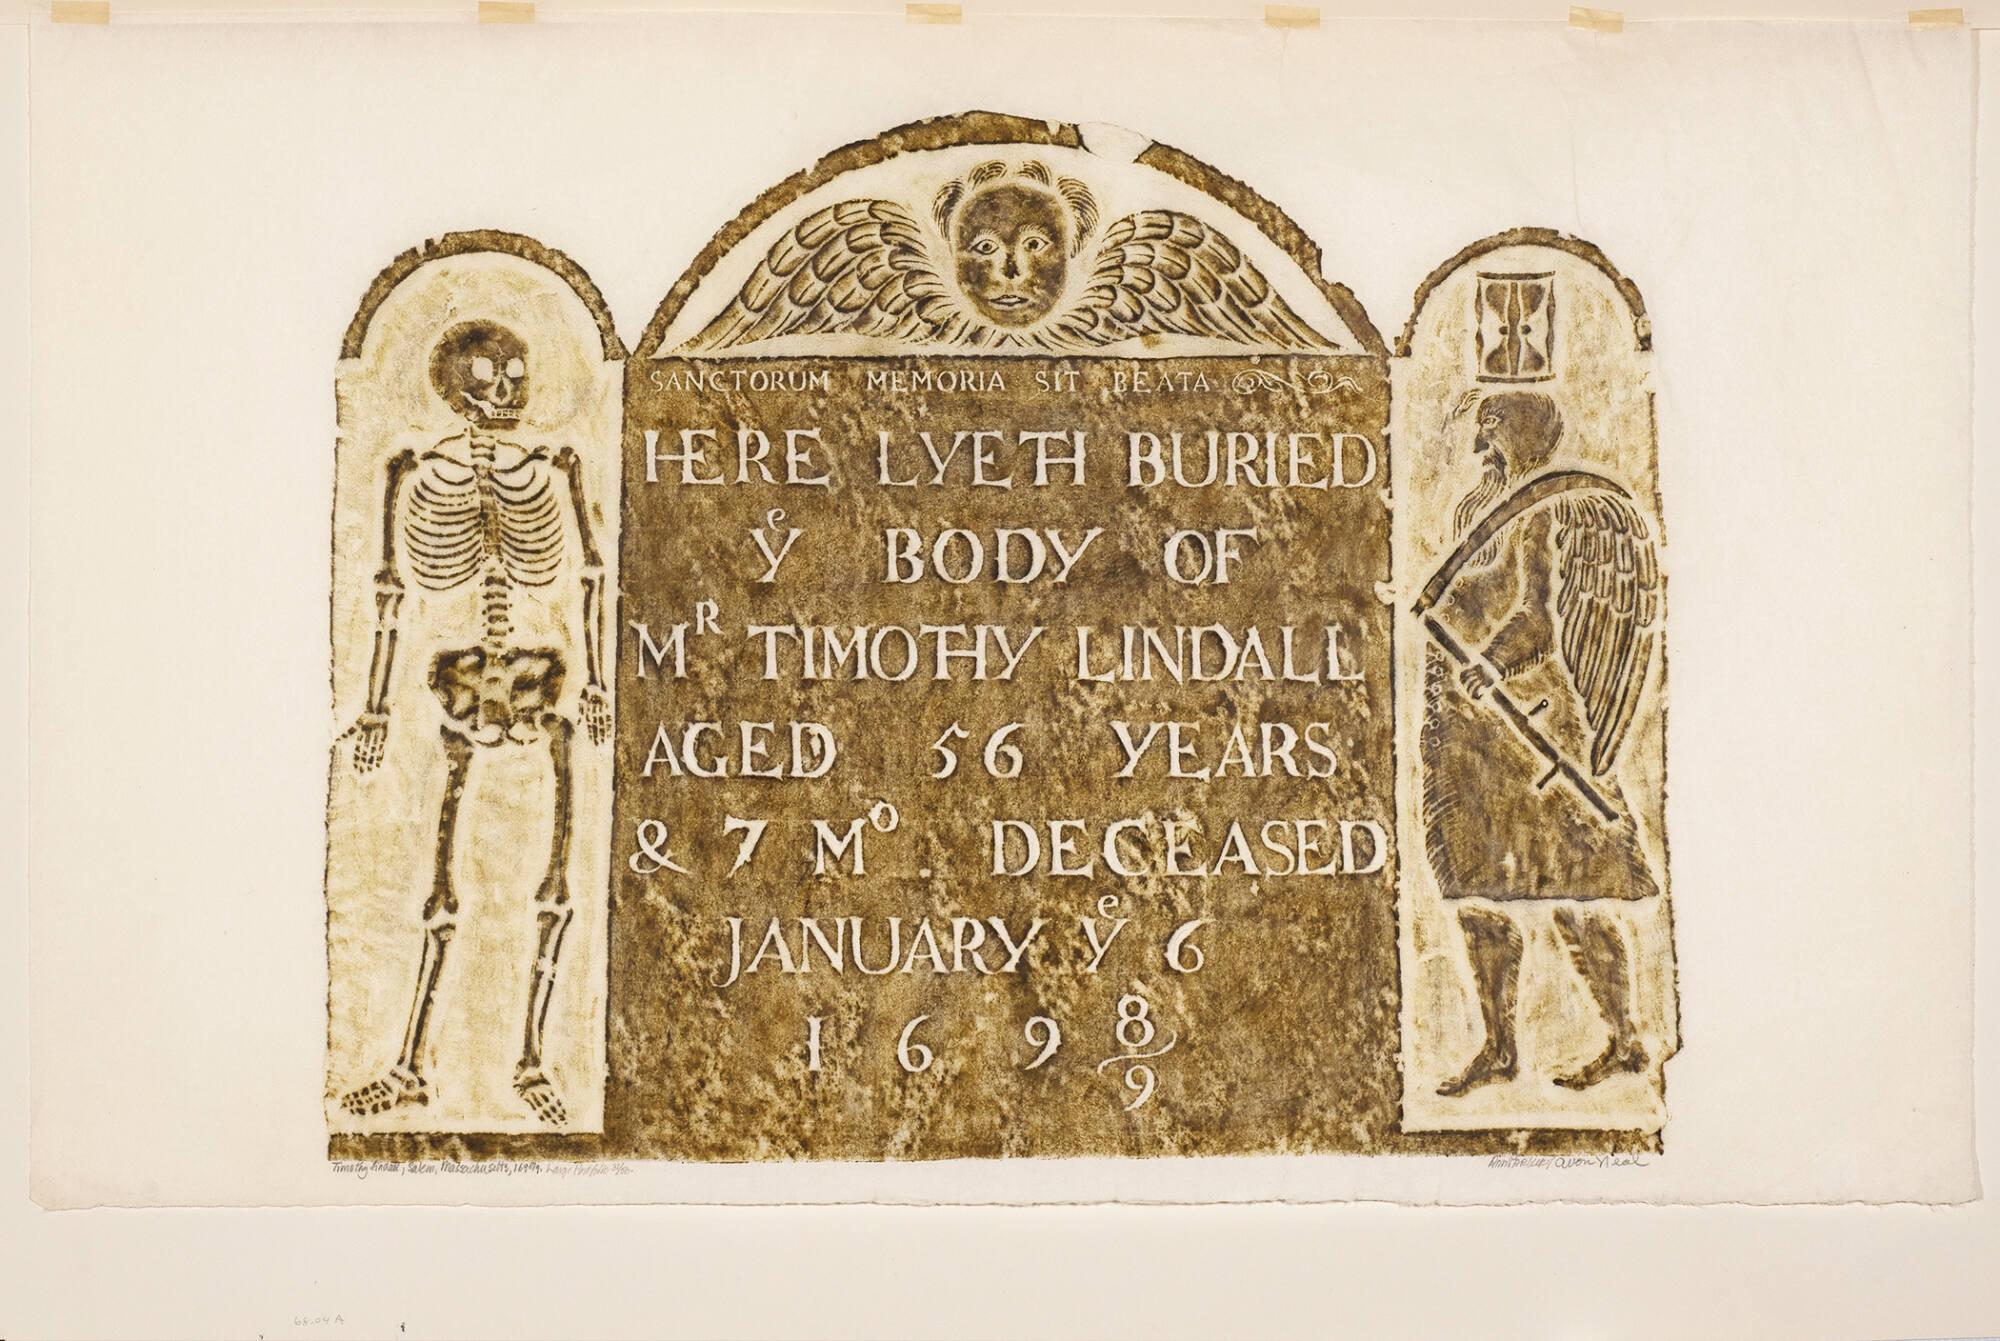 SANCTORUM MEMORIA SIT BEATA
HERE LYETH BURIED
Yᵉ BODY OF
Mᴿ TIMOTHY LINDALL
AGED 56 YEARS
& 7 Mᴼ. DECEASED
JANUARY Yᵉ 6
169 8/9
Timothy Lindall, Salem, Massachusetts, 1698/9. Large Portfolio
Avon Neal
68.04 A